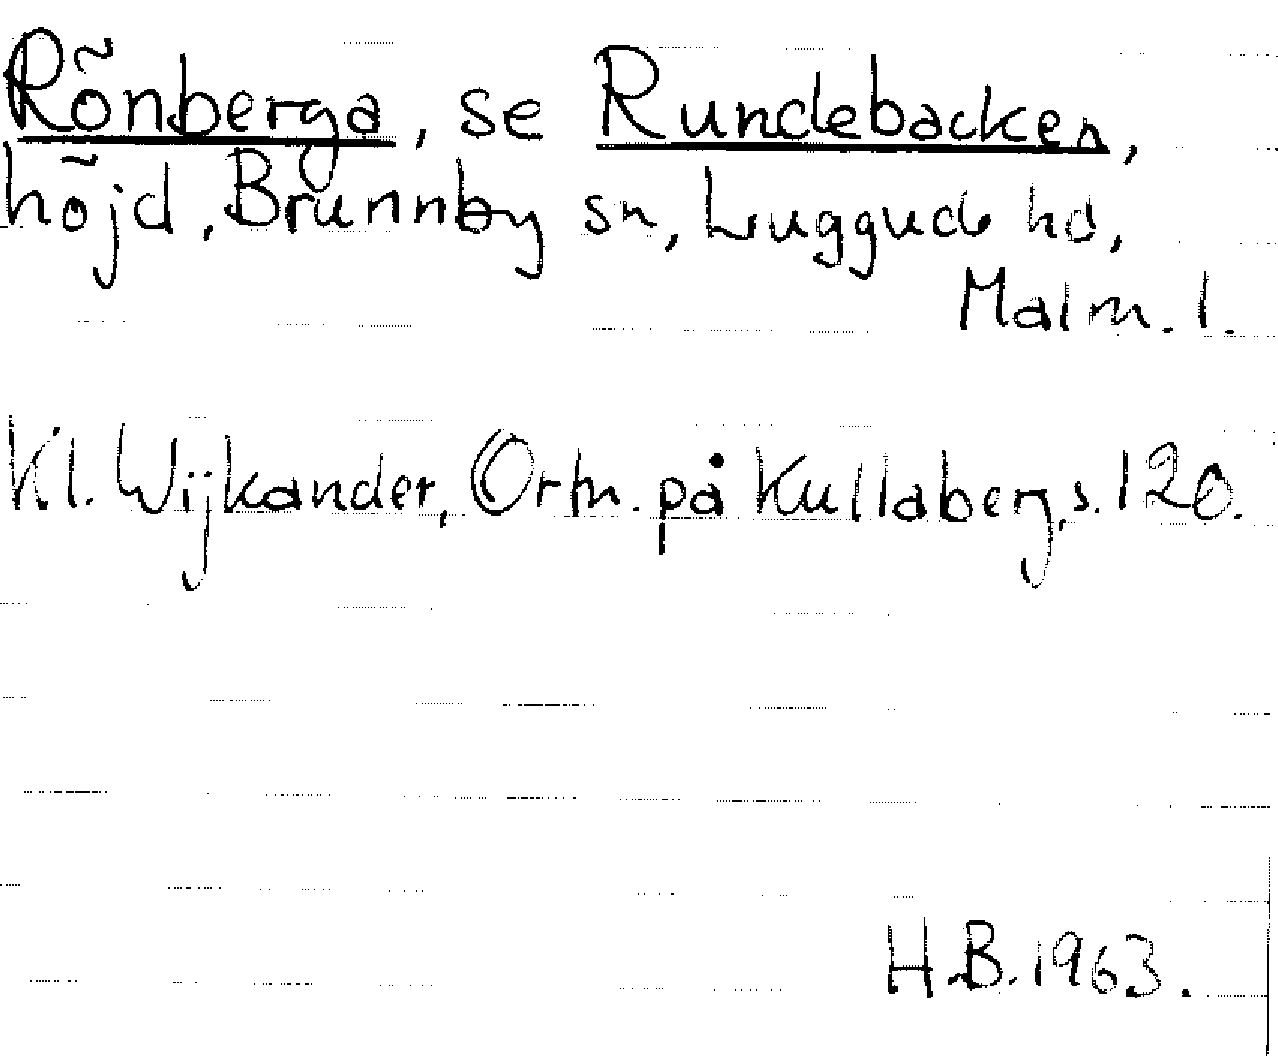 Rõnberga, se Rundebacken,
hõjd, Brunnby sn, Luggude hd,
Malm. l.
Kl. Wijkander, Ortn. på Kullaberg, s. 120.
H.B. 1963.